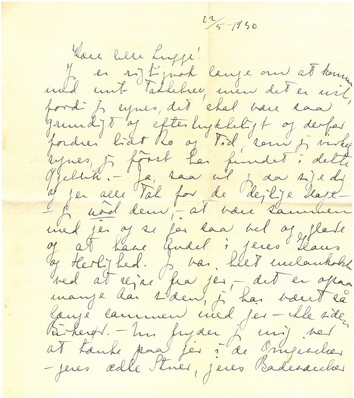 22/5-1930
Kære lille Lugge!
Jeg er rigtignok længe om at komme
med mit Takkebrev, men det er nu
fordi jeg synes, det skal være saa
grundigt og eftertrykkeligt og derfor
fordrer lidt Ro og Tid, som jeg virkelig
synes, jeg först har fundet i dette
Øjeblik. - Ja, saa vil jeg da sige dig
og jer alle Tak for de dejlige Dage -
- jeg nød dem, at være sammen
med jer og se jer saa vel og glade
og at have Andel i jeres Hans
og Herlighed. Jeg var helt melankolsk
ved at rejse fra jer, - det er ogsaa
mange Aar siden, jeg har været så
længe sammen med jer - ikke siden
- Nu fryder jeg mig ved
at tænke paa jer i de Omgivelser
- jeres ædle Stuer, jeres Badeværelser